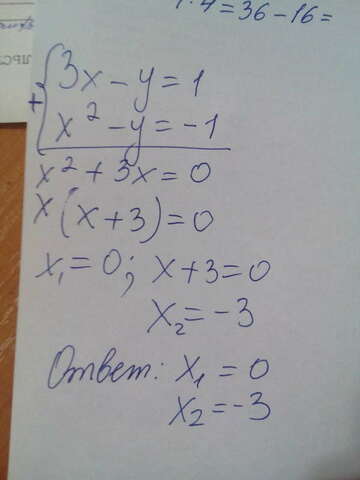 4 = 36 - 16 =
3x - y = 1
+
x² - y = -1
x² + 3x = 0
x(x + 3) = 0
x₁ = 0; x + 3 = 0
x₂ = -3
Ответ: x₁ = 0
x₂ = -3